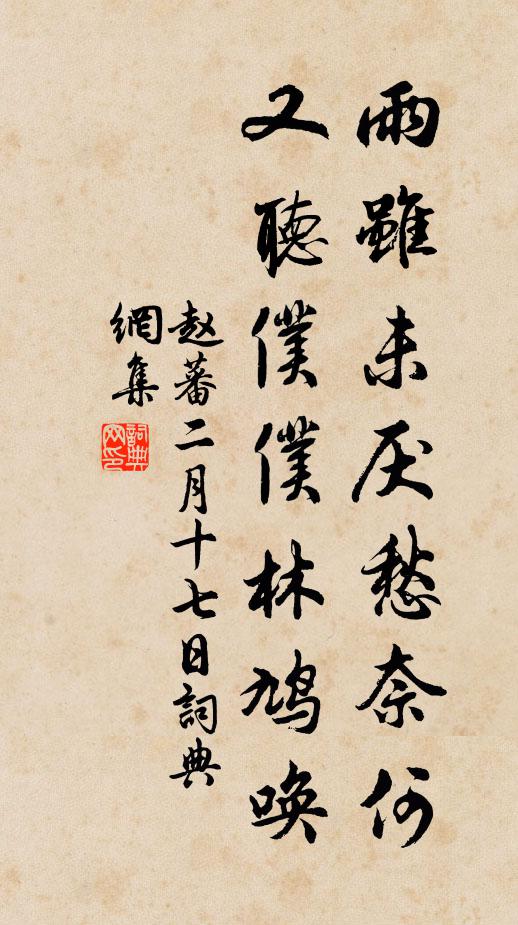 雨雖未厌愁奈何
又聽僕僕林鳩唤
赵蕃二月十七日詞典
網集
詞典
网印